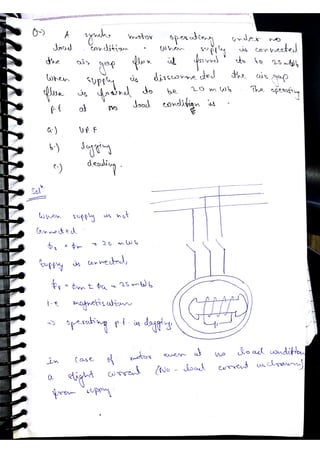 Q→) A synchr motor operating under no
load condition. when supply is connected
the air gap flux is found to be 25 mWb
when supply is disconnected the air gap
flux is found to be 20 mWb. The operating
pt at no load condition is.
a.) UPF
b.) lagging
c.) leading.
Sol:
When supply is not
connected.
= 20 mWb
Supply is connected,
= 25 mWb
i.e magnetisation
⇒ operating pt is lagging.
in case of motor even at no load condition
a slight current (No-load current is drawn)
from supply